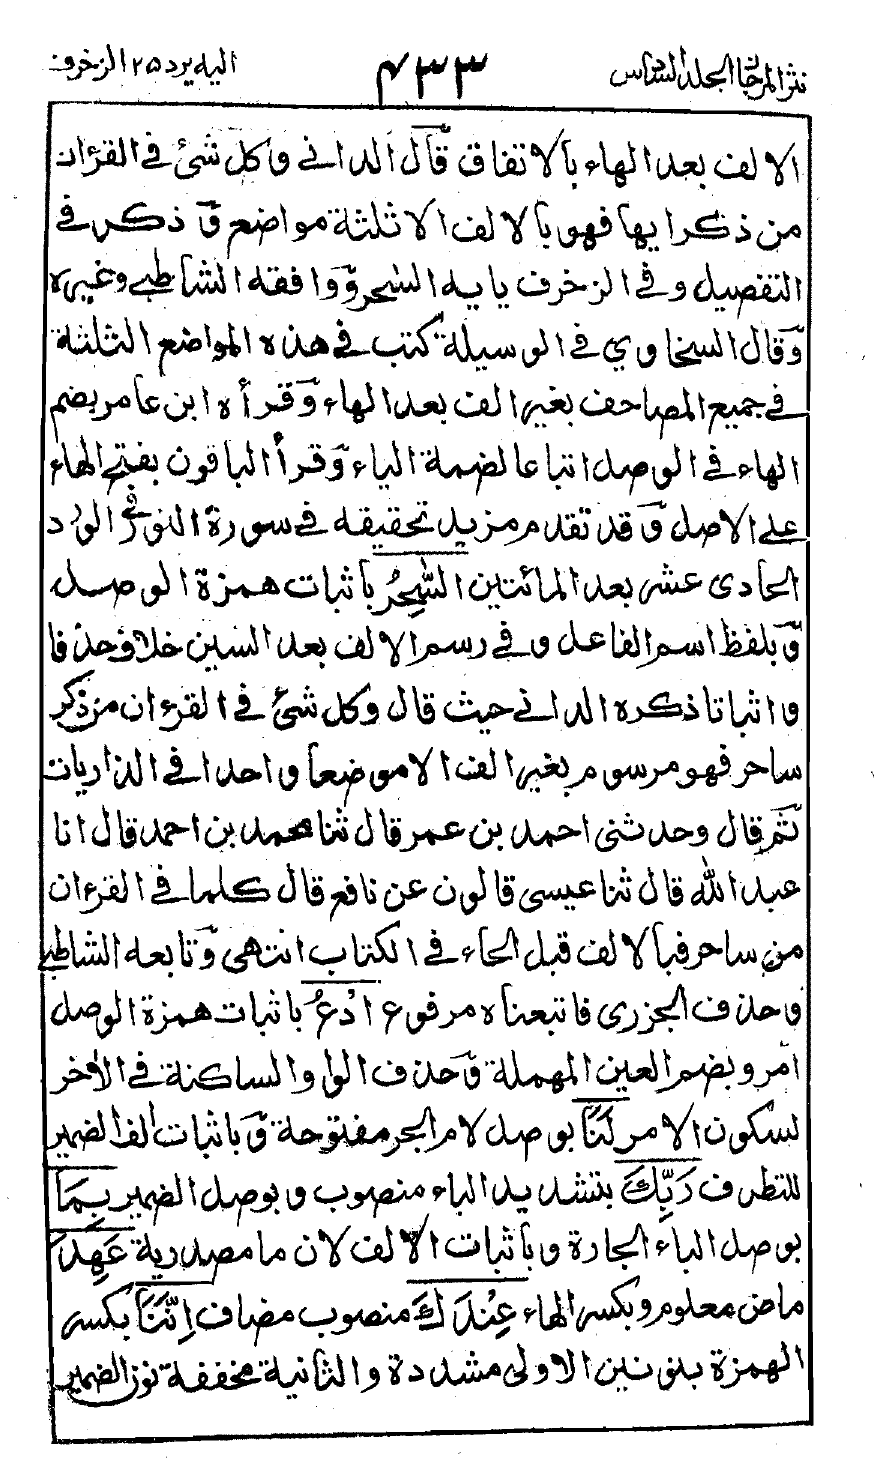 نثر المرجان الجلد السادس ٤٣٣ اليه يرد ٢٥ الزخرف
الالف بعد الهاء بالاتفاق قال الدانى وكل شئ فى القرءان
من ذكر ايها فهو بالالف الا ثلثة مواضع وذكر فى
التفصيل وفى الزخرف يايه السحر ووافقه الشاطبى وغيره
وقال السخاوى فى الوسيلة كتب فى هذه المواضع الثلثة
فى جميع المصاحف بغير الف بعد الهاء وقرأه ابن عامر بضم
الهاء فى الوصل اتباعا لضمة الياء وقرأ الباقون بفتح الهاء
على الاصل وقد تقدم مزيد تحقيقه فى سورة النور فى الورد
الحادى عشر بعد المائتين السَّحِرُ باثبات همزة الوصل
وبلفظ اسم الفاعل وفى رسم الالف بعد السين خلاف حذفا
واثباتا ذكره الدانى حيث قال وكل شئ فى القرءان من ذكر
ساحر فهو مرسوم بغير الف الا موضعا واحدا فى الذاريات
ثم قال وحدثنى احمد بن عمر قال ثنا محمد بن احمد قال انا
عبد الله قال ثنا عيسى قالون عن نافع قال كلما فى القرءان
من ساحر فبالالف قبل الحاء فى الكتاب انتهى وتابعه الشاطبى
وحذف الجزرى فاتبعناه مرفوع ادْعُ باثبات همزة الوصل
امر وبضم العين المهملة وحذف الواو الساكنة فى الاخر
لسكون الامر لَنَا بوصل لام الجر مفتوحة وباثبات الف الضمير
للتطرف رَبَّكَ بتشديد الباء منصوب وبوصل الضمير بِمَا
بوصل الباء الجارة وباثبات الالف لان ما مصدرية عَهِدَ
ماض معلوم وبكسر الهاء عِنْدَكَ منصوب مضاف اِنَّنَا بكسر
الهمزة بنونين الاولى مشددة والثانية مخففة نون الضمير